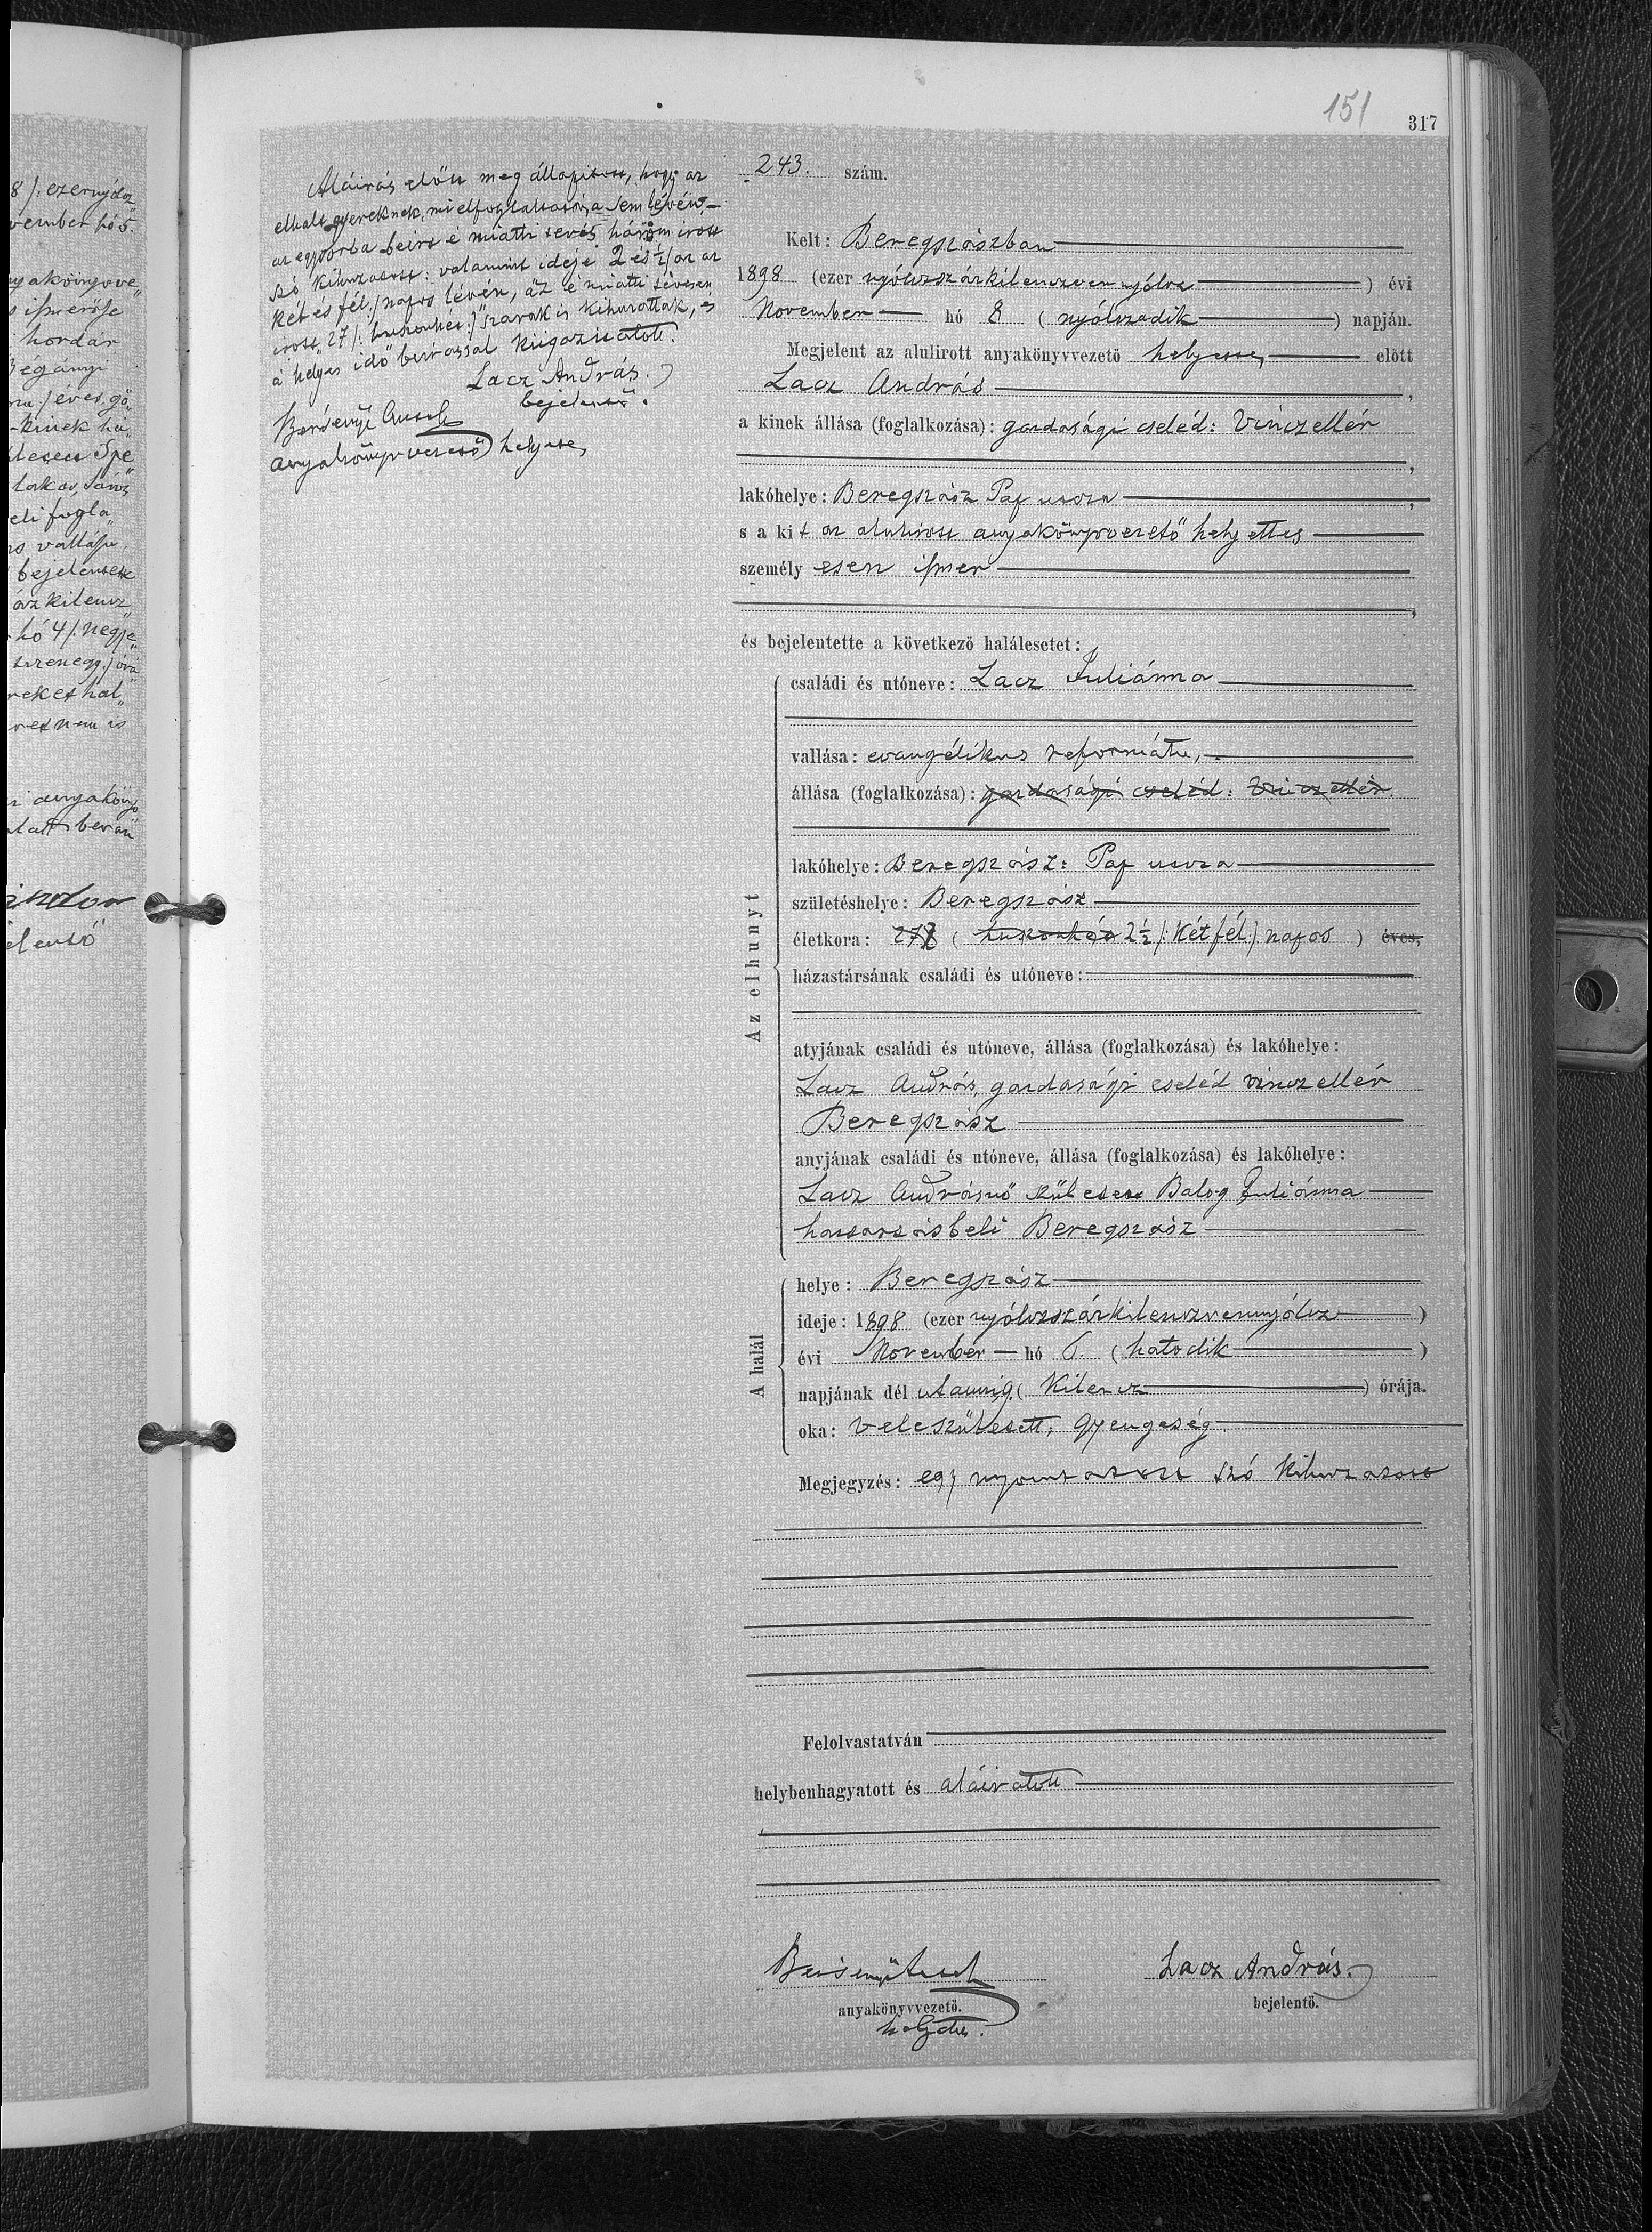 151
317
8 /: ezernyolcz
vember hó 5.
nyakönyvve
ismerőse
hordár
Bégányi
éves, gö
kinek há
eli fogla
vallású,
bejelentette
az kilencz
hó 4 /: negye
anyakönyv
elentő
Aláirás előtt meg állapitott, hogy az
elhalt gyereknek, mi elfoglaltsága sem lévén,
az egy sorba beirt é miatti téves három irott
szó kihuzatott: valamint ideje 2 és ½ /: az az
két és fél :/ napos lévén, az é miatti tévesen
irott "27 /: huszonhét :/" szavak is kihuzattak, és
a helyes idő beirással kiigazittatott.
Lacz András.
bejelentő.
Berzenyi
anyakönyvvezető helyttes,
243. szám.
Kelt: Beregszászban
1898 (ezer nyólczszázkilenczvennyólcz) évi
November hó 8 (nyólczadik) napján.
Megjelent az alulirott anyakönyvvezető helyettes, előtt
Lacz András,
a kinek állása (foglalkozása): gazdasági cseléd: Vinczellér
,
lakóhelye: Beregszász Pap utcza,
s a kit az alulirott anyakönyvvezető helyettes
személyesen ismer
,
és bejelentette a következő halálesetet:
Az elhunyt
családi és utóneve: Lacz Juliánna
vallása: evangélikus református,
állása (foglalkozása): gazdasági cseléd: Vinczellér.
lakóhelye: Beregszász: Pap utcza
születéshelye: Beregszász
életkora: 27 (huszonhét 2½ /: Két fél :/ napos) éves,
házastársának családi és utóneve:
atyjának családi és utóneve, állása (foglalkozása) és lakóhelye:
Lacz András, gazdasági cseléd vinczellér
Beregszász
anyjának családi és utóneve, állása (foglalkozása) és lakóhelye:
Lacz Andrásnő született Balog Juliánna
háztartásbeli Beregszász
A halál
helye: Beregszász
ideje: 1898 (ezer nyólczszázkilenczvennyólcz)
évi November hó 6. (hatodik)
napjának dél utánnig (Kilencz) órája.
oka: veleszületett, gyengeség.
Megjegyzés: egy nyomtatott szó kihuzatott
Felolvastatván
helybenhagyatott és aláiratott
Lacz András.
anyakönyvvezető. bejelentő.
helyettes.